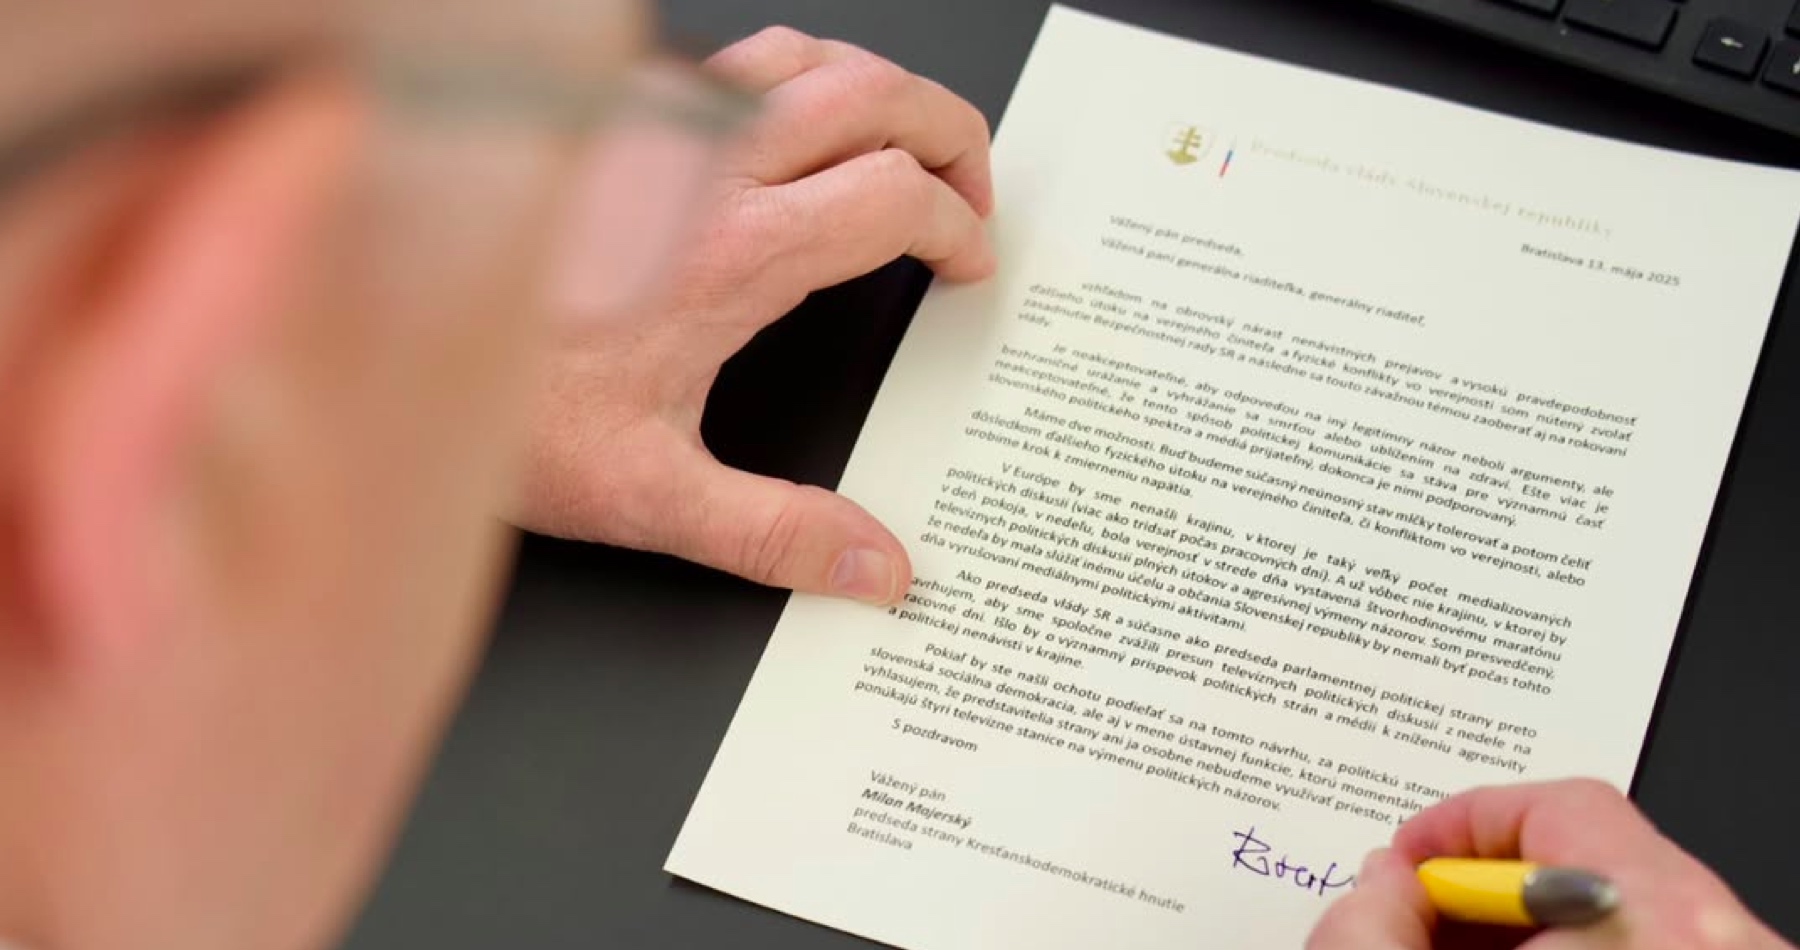 Predseda vlády Slovenskej republiky
Bratislava 13. mája 2025
Vážený pán predseda,
Vážená pani generálna riaditeľka, generálny riaditeľ,
vzhľadom na obrovský nárast nenávistných prejavov a vysokú pravdepodobnosť
ďalšieho útoku na verejného činiteľa a fyzické konflikty vo verejnosti som nútený zvolať
zasadnutie Bezpečnostnej rady SR a následne sa touto závažnou témou zaoberať aj na rokovaní
vlády.
Je neakceptovateľné, aby odpoveďou na iný legitímny názor neboli argumenty, ale
bezhraničné urážanie a vyhrážanie sa smrťou alebo ublížením na zdraví. Ešte viac je
neakceptovateľné, že tento spôsob politickej komunikácie sa stáva pre významnú časť
slovenského politického spektra a médiá prijateľný, dokonca je nimi podporovaný.
Máme dve možnosti. Buď budeme súčasný neúnosný stav mlčky tolerovať a potom čeliť
dôsledkom ďalšieho fyzického útoku na verejného činiteľa, či konfliktom vo verejnosti, alebo
urobíme krok k zmierneniu napätia.
V Európe by sme nenašli krajinu, v ktorej je taký veľký počet medializovaných
politických diskusií (viac ako tridsať počas pracovných dní). A už vôbec nie krajinu, v ktorej by
v deň pokoja, v nedeľu, bola verejnosť v strede dňa vystavená štvorhodinovému maratónu
televíznych politických diskusií plných útokov a agresívnej výmeny názorov. Som presvedčený,
že nedeľa by mala slúžiť inému účelu a občania Slovenskej republiky by nemali byť počas tohto
dňa vyrušovaní mediálnymi politickými aktivitami.
Ako predseda vlády SR a súčasne ako predseda parlamentnej politickej strany preto
avrhujem, aby sme spoločne zvážili presun televíznych politických diskusií z nedele na
racovné dni. Išlo by o významný príspevok politických strán a médií k zníženiu agresivity
a politickej nenávisti v krajine.
Pokiaľ by ste našli ochotu podieľať sa na tomto návrhu, za politickú stranu
slovenská sociálna demokracia, ale aj v mene ústavnej funkcie, ktorú momentáln
vyhlasujem, že predstavitelia strany ani ja osobne nebudeme využívať priestor, k
ponúkajú štyri televízne stanice na výmenu politických názorov.
S pozdravom
Vážený pán
Milan Majerský
predseda strany Kresťanskodemokratické hnutie
Bratislava
Robert